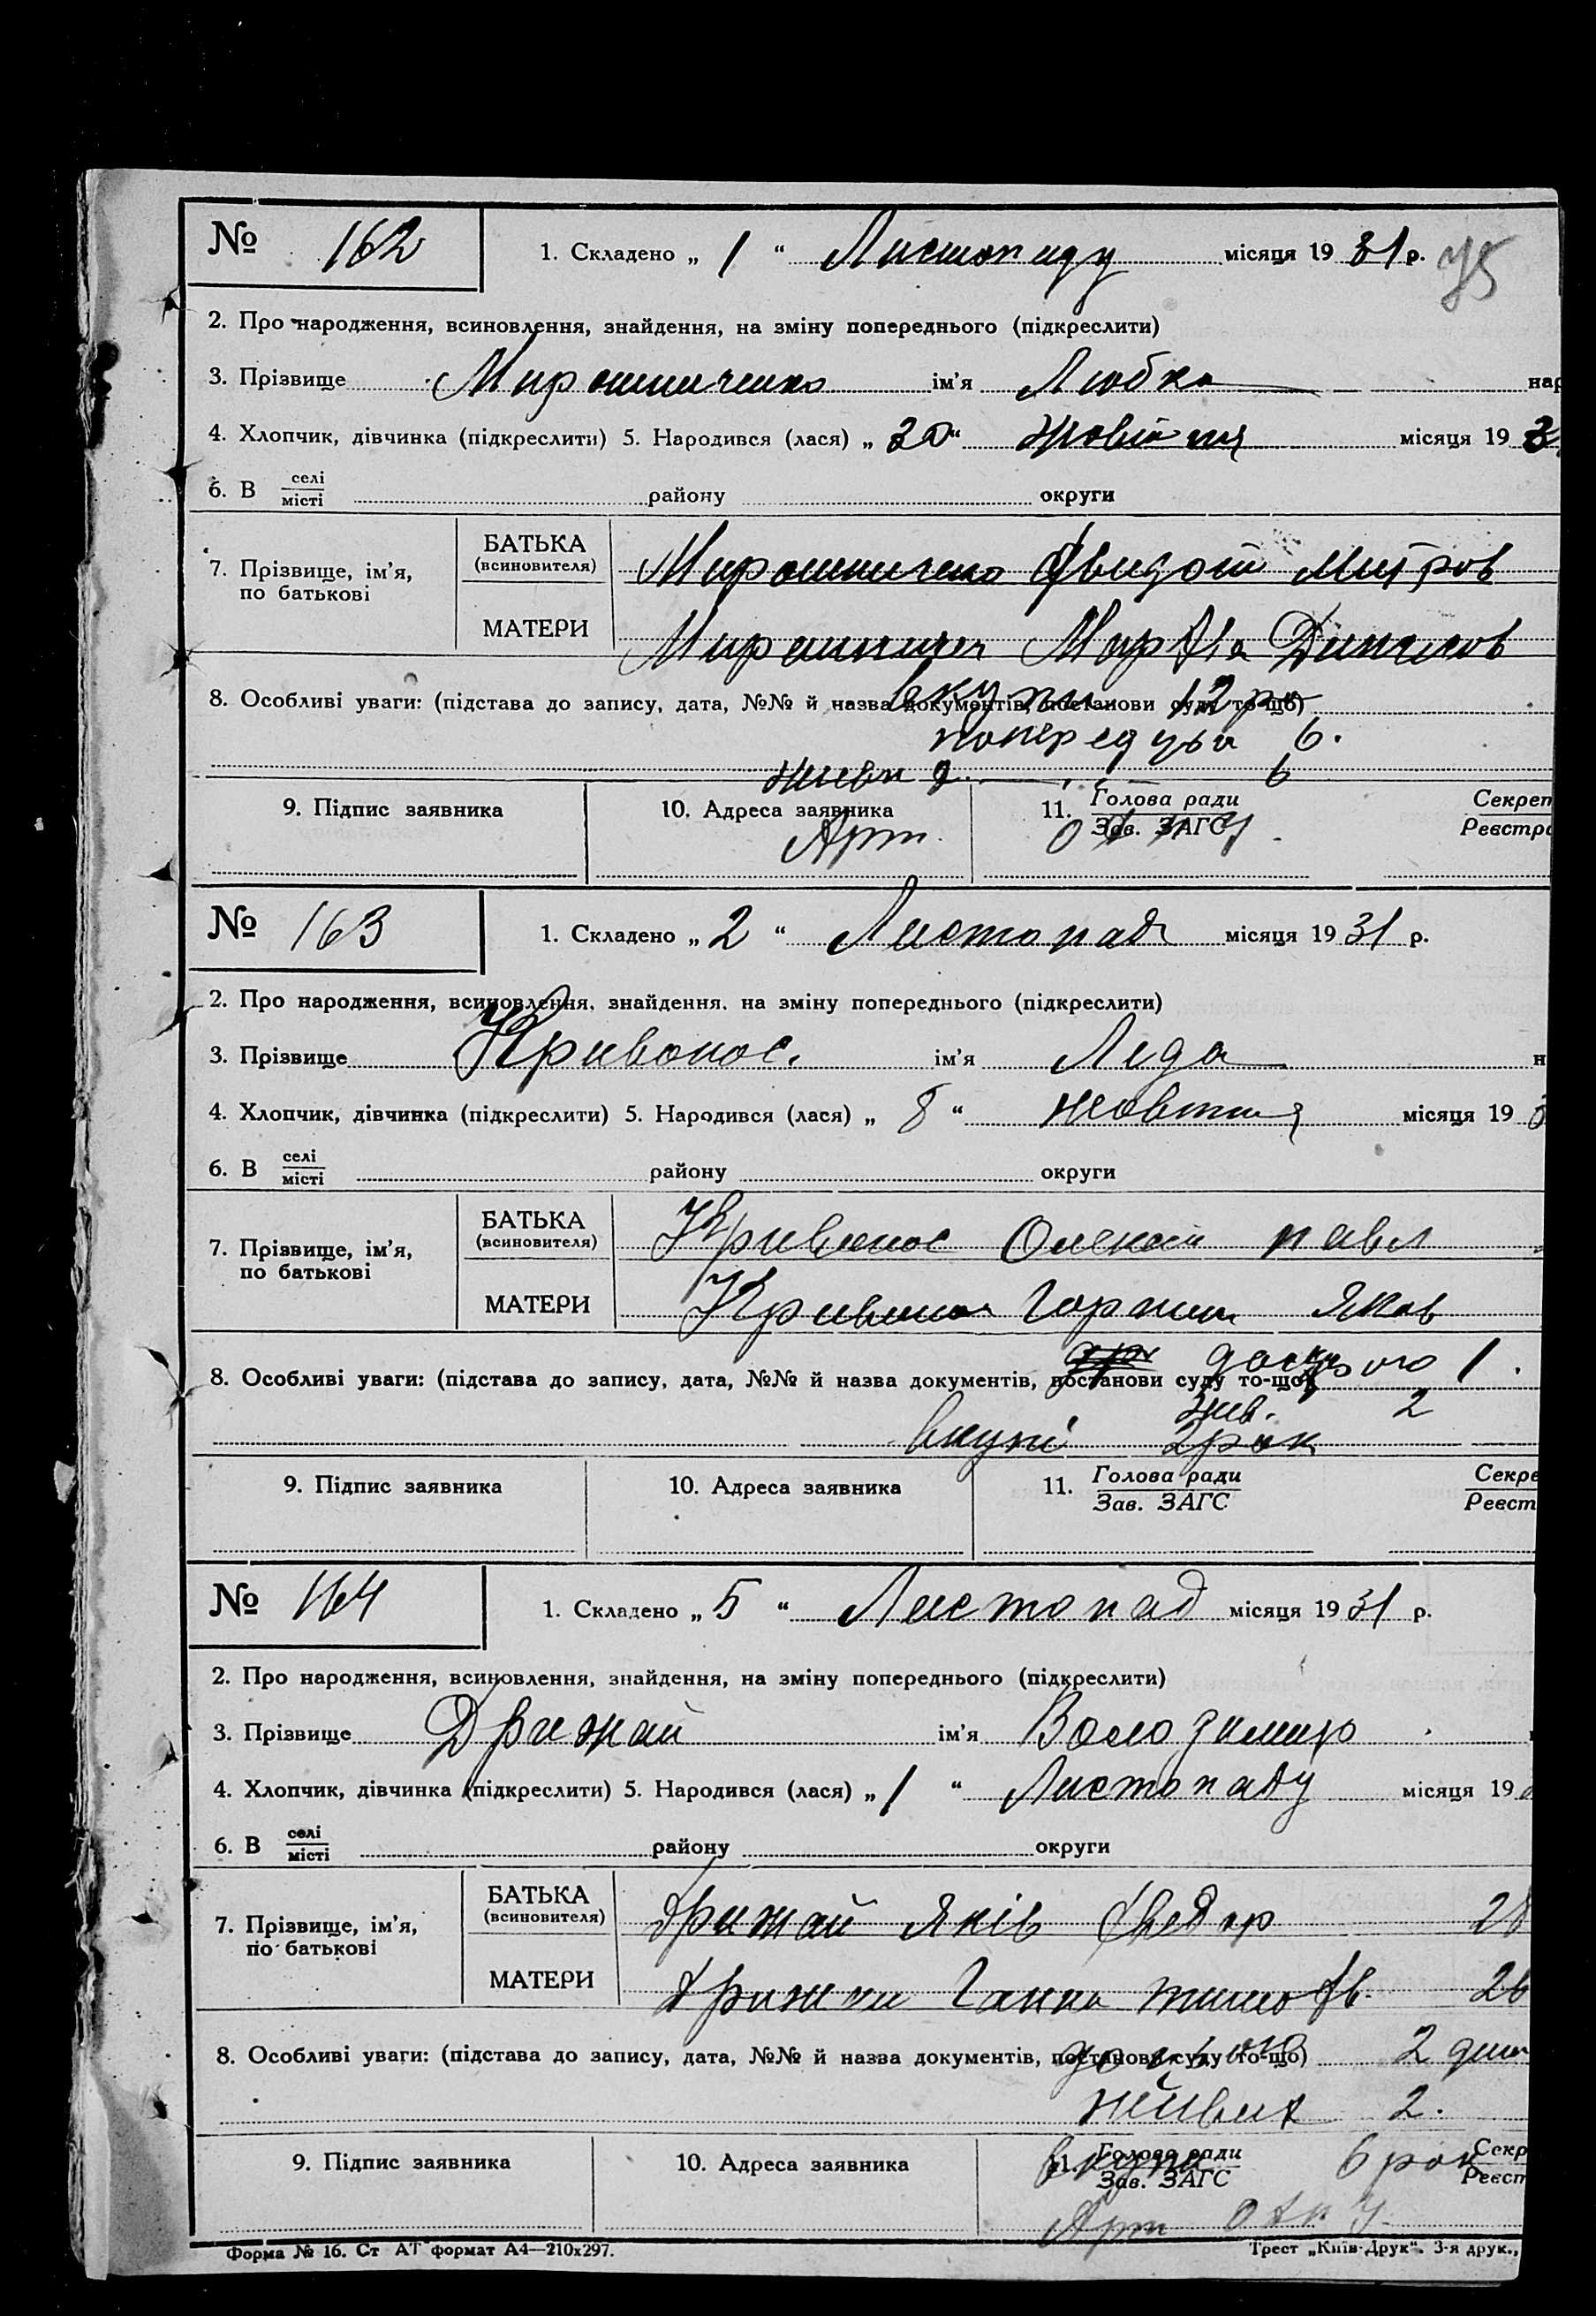 № 162 1. Складено „ 1 “ Листопаду місяця 19 31 р. 75
2. Про народження, всиновлення, знайдення, на зміну попереднього (підкреслити)
3. Прізвище Мирошниченко ім’я Любка нар
4. Хлопчик, дівчинка (підкреслити) 5. Народився (лася) „ 30 “ жовтня місяця 19 3
6. В селі місті району округи
7. Прізвище, ім’я, по батькові
БАТЬКА (всиновителя) Мирошниченко Митров
МАТЕРИ Марфа
8. Особливі уваги: (підстава до запису, дата, №№ й назва документів, постанови суду то-що)
вкупи 12
6.
6
9. Підпис заявника 10. Адреса заявника 11. Голова ради Зав. ЗАГС Секрет Реєстра
Арт.
№ 163 1. Складено „ 2 “ Листопад місяця 19 31 р.
2. Про народження, всиновлення, знайдення, на зміну попереднього (підкреслити)
3. Прізвище Кривонос. ім’я Лида н
4. Хлопчик, дівчинка (підкреслити) 5. Народився (лася) „ 8 “ жовтня місяця 19 3
6. В селі місті району округи
7. Прізвище, ім’я, по батькові
БАТЬКА (всиновителя) Кривонос Олексій павл
МАТЕРИ Яков
8. Особливі уваги: (підстава до запису, дата, №№ й назва документів, постанови суду то-що)
1.
жив. 2
вкупі 2 рок
9. Підпис заявника 10. Адреса заявника 11. Голова ради Зав. ЗАГС Секре Реєст
№ 164 1. Складено „ 5 “ Листопад місяця 19 31 р.
2. Про народження, всиновлення, знайдення, на зміну попереднього (підкреслити)
3. Прізвище Дрижай ім’я Володимир
4. Хлопчик, дівчинка (підкреслити) 5. Народився (лася) „ 1 “ Листопаду місяця 19
6. В селі місті району округи
7. Прізвище, ім’я, по батькові
БАТЬКА (всиновителя) Дрижай Яків Федор 28
МАТЕРИ Ганна Тимофв. 26
8. Особливі уваги: (підстава до запису, дата, №№ й назва документів, постанови суду то-що) 2
живих 2.
9. Підпис заявника 10. Адреса заявника 11. Голова ради Зав. ЗАГС Секр Реєст
вкупи 6 рок
Арт
Форма № 16. Ст АТ формат А4—210х297. Трест „Київ-Друк“. 3-я друк.,